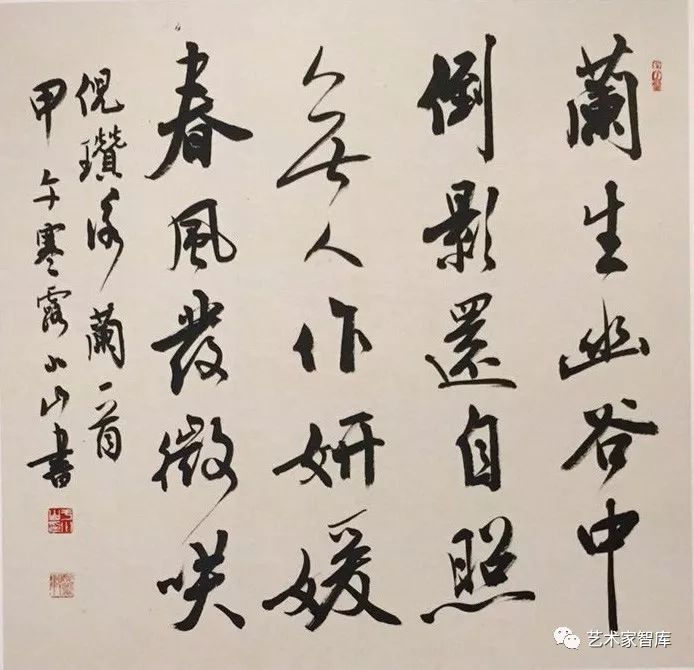 蘭生幽谷中
倒影還自照
無人作妍媛
春風發微咲
倪瓚詠蘭一首
甲午寒露小山書
艺术家智库